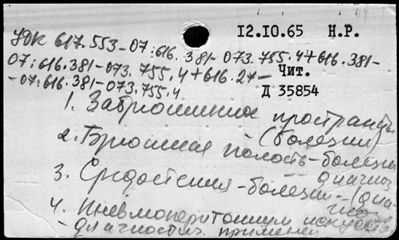 12.10.65 Н.Р.
УДК 617.553-07:616.381-073.755.4+616.381-
07:616.381-073.755.4+616.27-
-07:616.381-073.755.4.
Чит.
Д 35854
1. Забрюшинное пространство
(болезни)
2. Брюшная полость-болезни
диагноз
3. Средостения-болезни-
4. Пневмоперитонеум искусств
-диагностич. применен